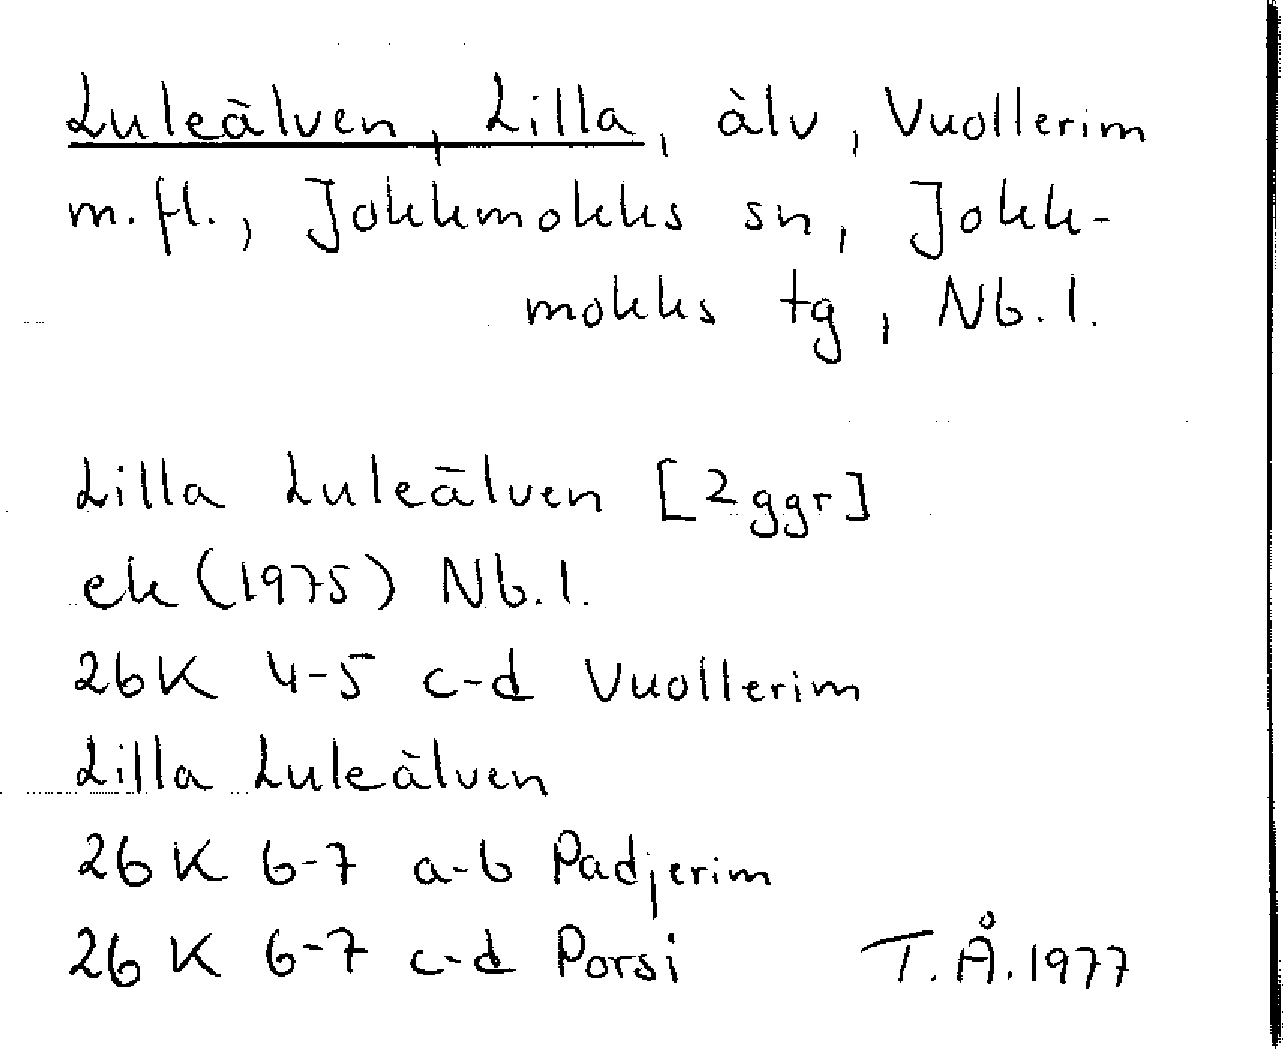 Luleälven, Lilla, älv, Vuollerim
m.fl., Jokkmokks sn, Jokk-
mokks tg, Nb.l.
Lilla Luleälven [2 ggr]
ek (1975) Nb.l.
26K 4-5 c-d Vuollerim
Lilla Luleälven
26K 6-7 a-b Padjerim
26K 6-7 c-d Porsi T.Å.1977